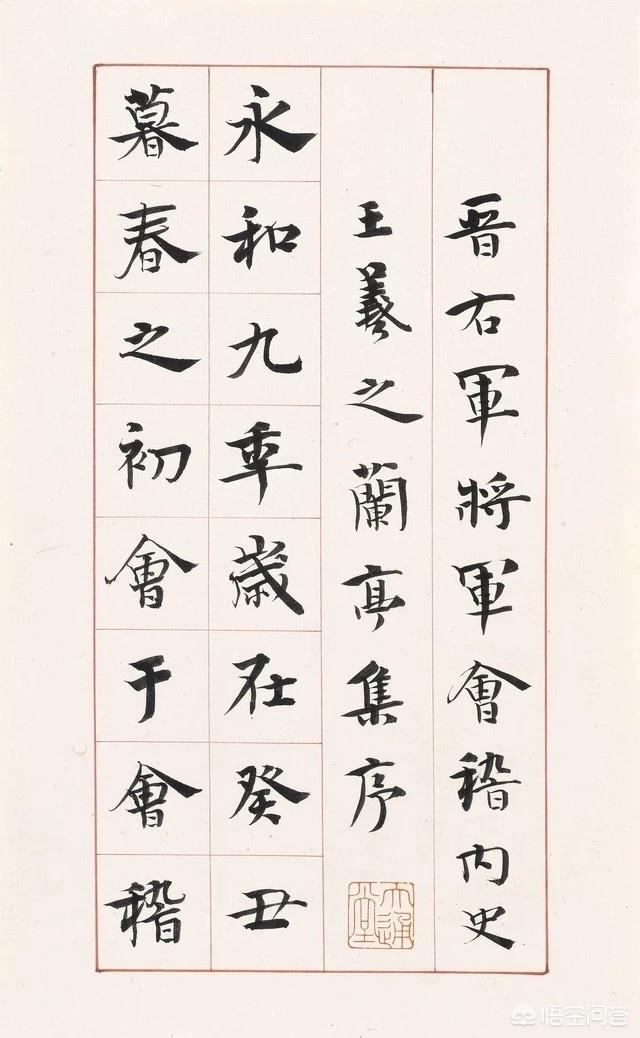 晋右軍將軍會稽内史
王羲之蘭亭集序
永和九年歲在癸丑
暮春之初會于會稽
大通堂
悟空问答